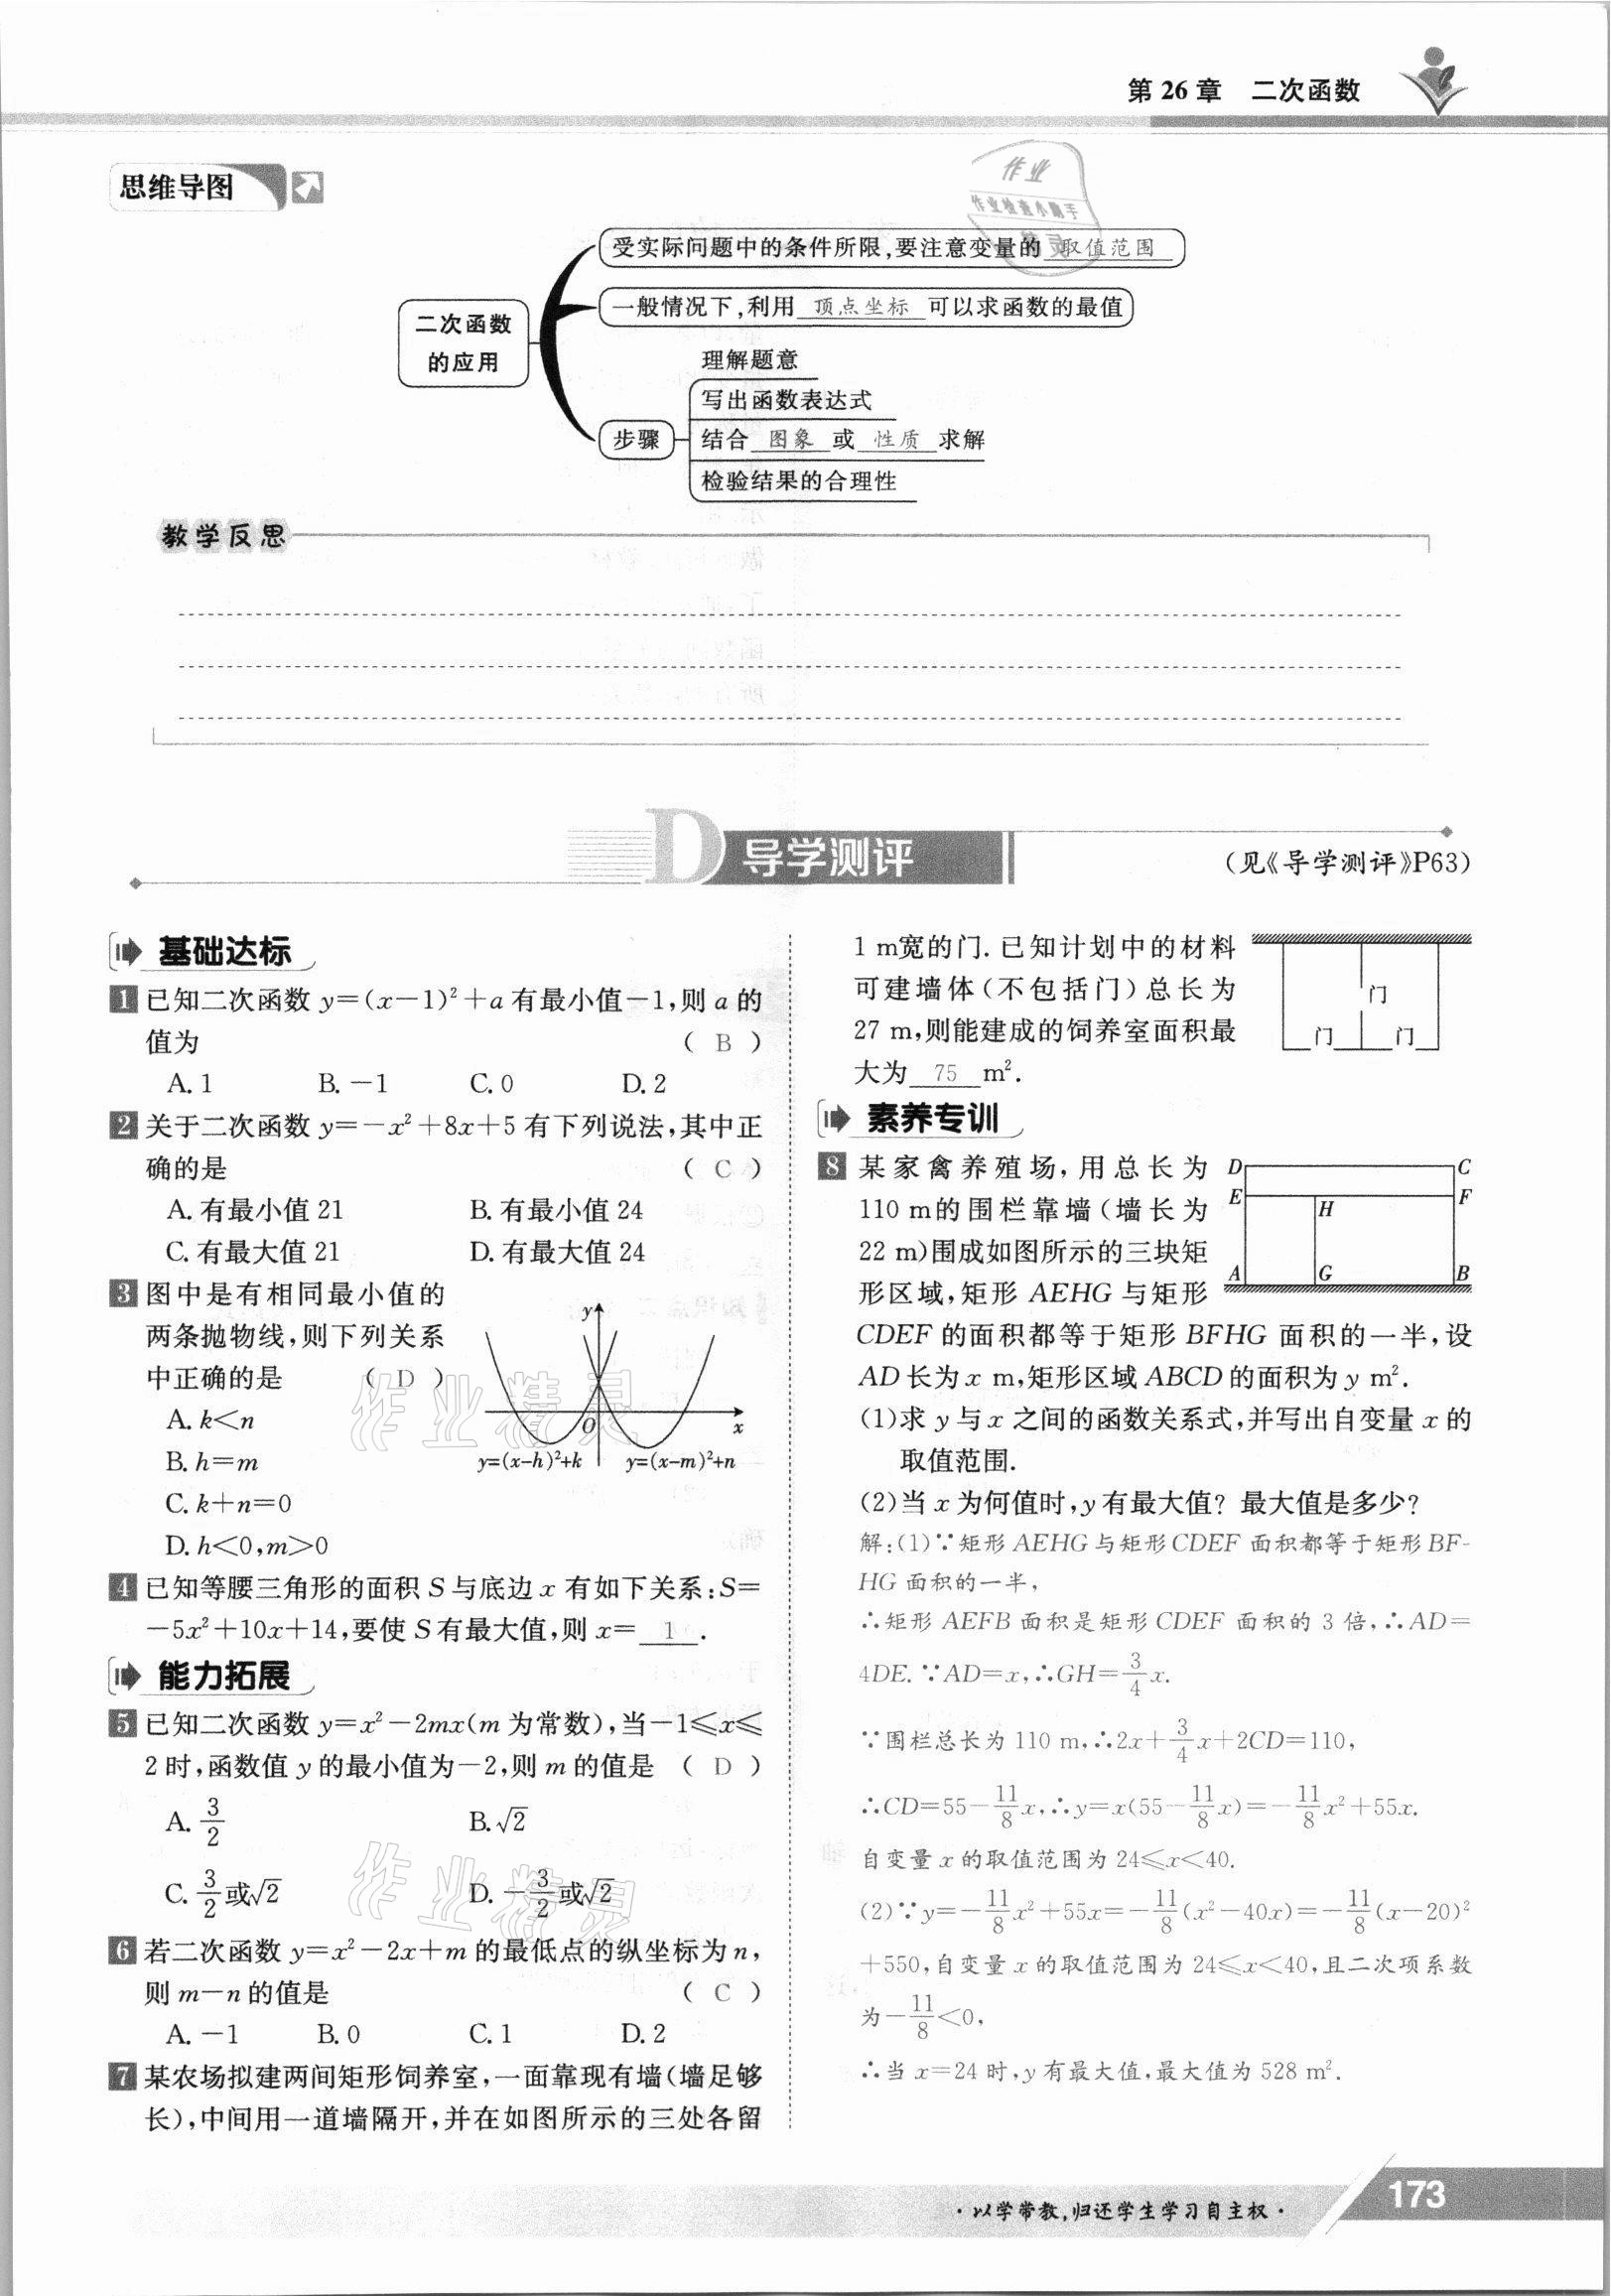 第 26 章 二次函数
思维导图
作业
作业检查小助手
二次函数
的应用
受实际问题中的条件所限,要注意变量的 取值范围
一般情况下,利用 顶点坐标 可以求函数的最值
步骤
理解题意
写出函数表达式
结合 图象 或 性质 求解
检验结果的合理性
教学反思
D 导学测评
(见《导学测评》P63)
基础达标
1 已知二次函数 y=(x−1)²+a 有最小值−1,则 a 的
值为 ( B )
A. 1 B. −1 C. 0 D. 2
2 关于二次函数 y=−x²+8x+5 有下列说法,其中正
确的是 ( C )
A. 有最小值 21 B. 有最小值 24
C. 有最大值 21 D. 有最大值 24
3 图中是有相同最小值的
两条抛物线,则下列关系
中正确的是 ( D )
A. k<n
B. h=m
C. k+n=0
D. h<0,m>0
y
O
x
y=(x-h)²+k
y=(x-m)²+n
4 已知等腰三角形的面积 S 与底边 x 有如下关系:S=
−5x²+10x+14,要使 S 有最大值,则 x= 1 .
能力拓展
5 已知二次函数 y=x²−2mx(m 为常数),当−1≤x≤
2 时,函数值 y 的最小值为−2,则 m 的值是 ( D )
A. 3/2 B. √2
C. 3/2或√2 D. −3/2或√2
6 若二次函数 y=x²−2x+m 的最低点的纵坐标为 n,
则 m−n 的值是 ( C )
A. −1 B. 0 C. 1 D. 2
7 某农场拟建两间矩形饲养室,一面靠现有墙(墙足够
长),中间用一道墙隔开,并在如图所示的三处各留
1 m宽的门. 已知计划中的材料
可建墙体(不包括门)总长为
27 m,则能建成的饲养室面积最
大为 75 m².
门
门
门
素养专训
8 某家禽养殖场,用总长为
110 m的围栏靠墙(墙长为
22 m)围成如图所示的三块矩
形区域,矩形 AEHG 与矩形
CDEF 的面积都等于矩形 BFHG 面积的一半,设
AD 长为 x m,矩形区域 ABCD 的面积为 y m².
D C
E H F
A G B
(1)求 y 与 x 之间的函数关系式,并写出自变量 x 的
取值范围.
(2)当 x 为何值时,y 有最大值? 最大值是多少?
解:(1)∵矩形 AEHG 与矩形 CDEF 面积都等于矩形 BF-
HG 面积的一半,
∴矩形 AEFB 面积是矩形 CDEF 面积的 3 倍,∴AD=
4DE. ∵AD=x,∴GH=3/4x.
∵围栏总长为 110 m,∴2x+3/4x+2CD=110,
∴CD=55−11/8x,∴y=x(55−11/8x)=−11/8x²+55x.
自变量 x 的取值范围为 24≤x<40.
(2)∵y=−11/8x²+55x=−11/8(x²−40x)=−11/8(x−20)²
+550,自变量 x 的取值范围为 24≤x<40,且二次项系数
为−11/8<0,
∴当 x=24 时,y 有最大值,最大值为 528 m².
作业精灵
作业精灵
·以学带教,归还学生学习自主权·
173